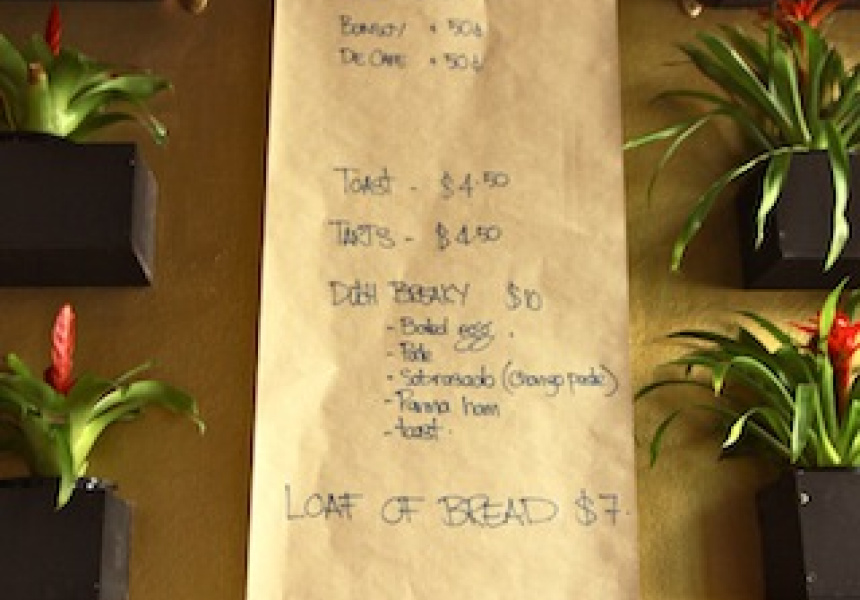 BONSOY + 50¢
DECAFE + 50¢
TOAST - $4.50
TARTS - $4.50
DISH BREAKY $10
- Boiled egg.
- Pate
- Sobrasado (Chorizo paste)
- Parma ham
- toast.
LOAF OF BREAD $7.